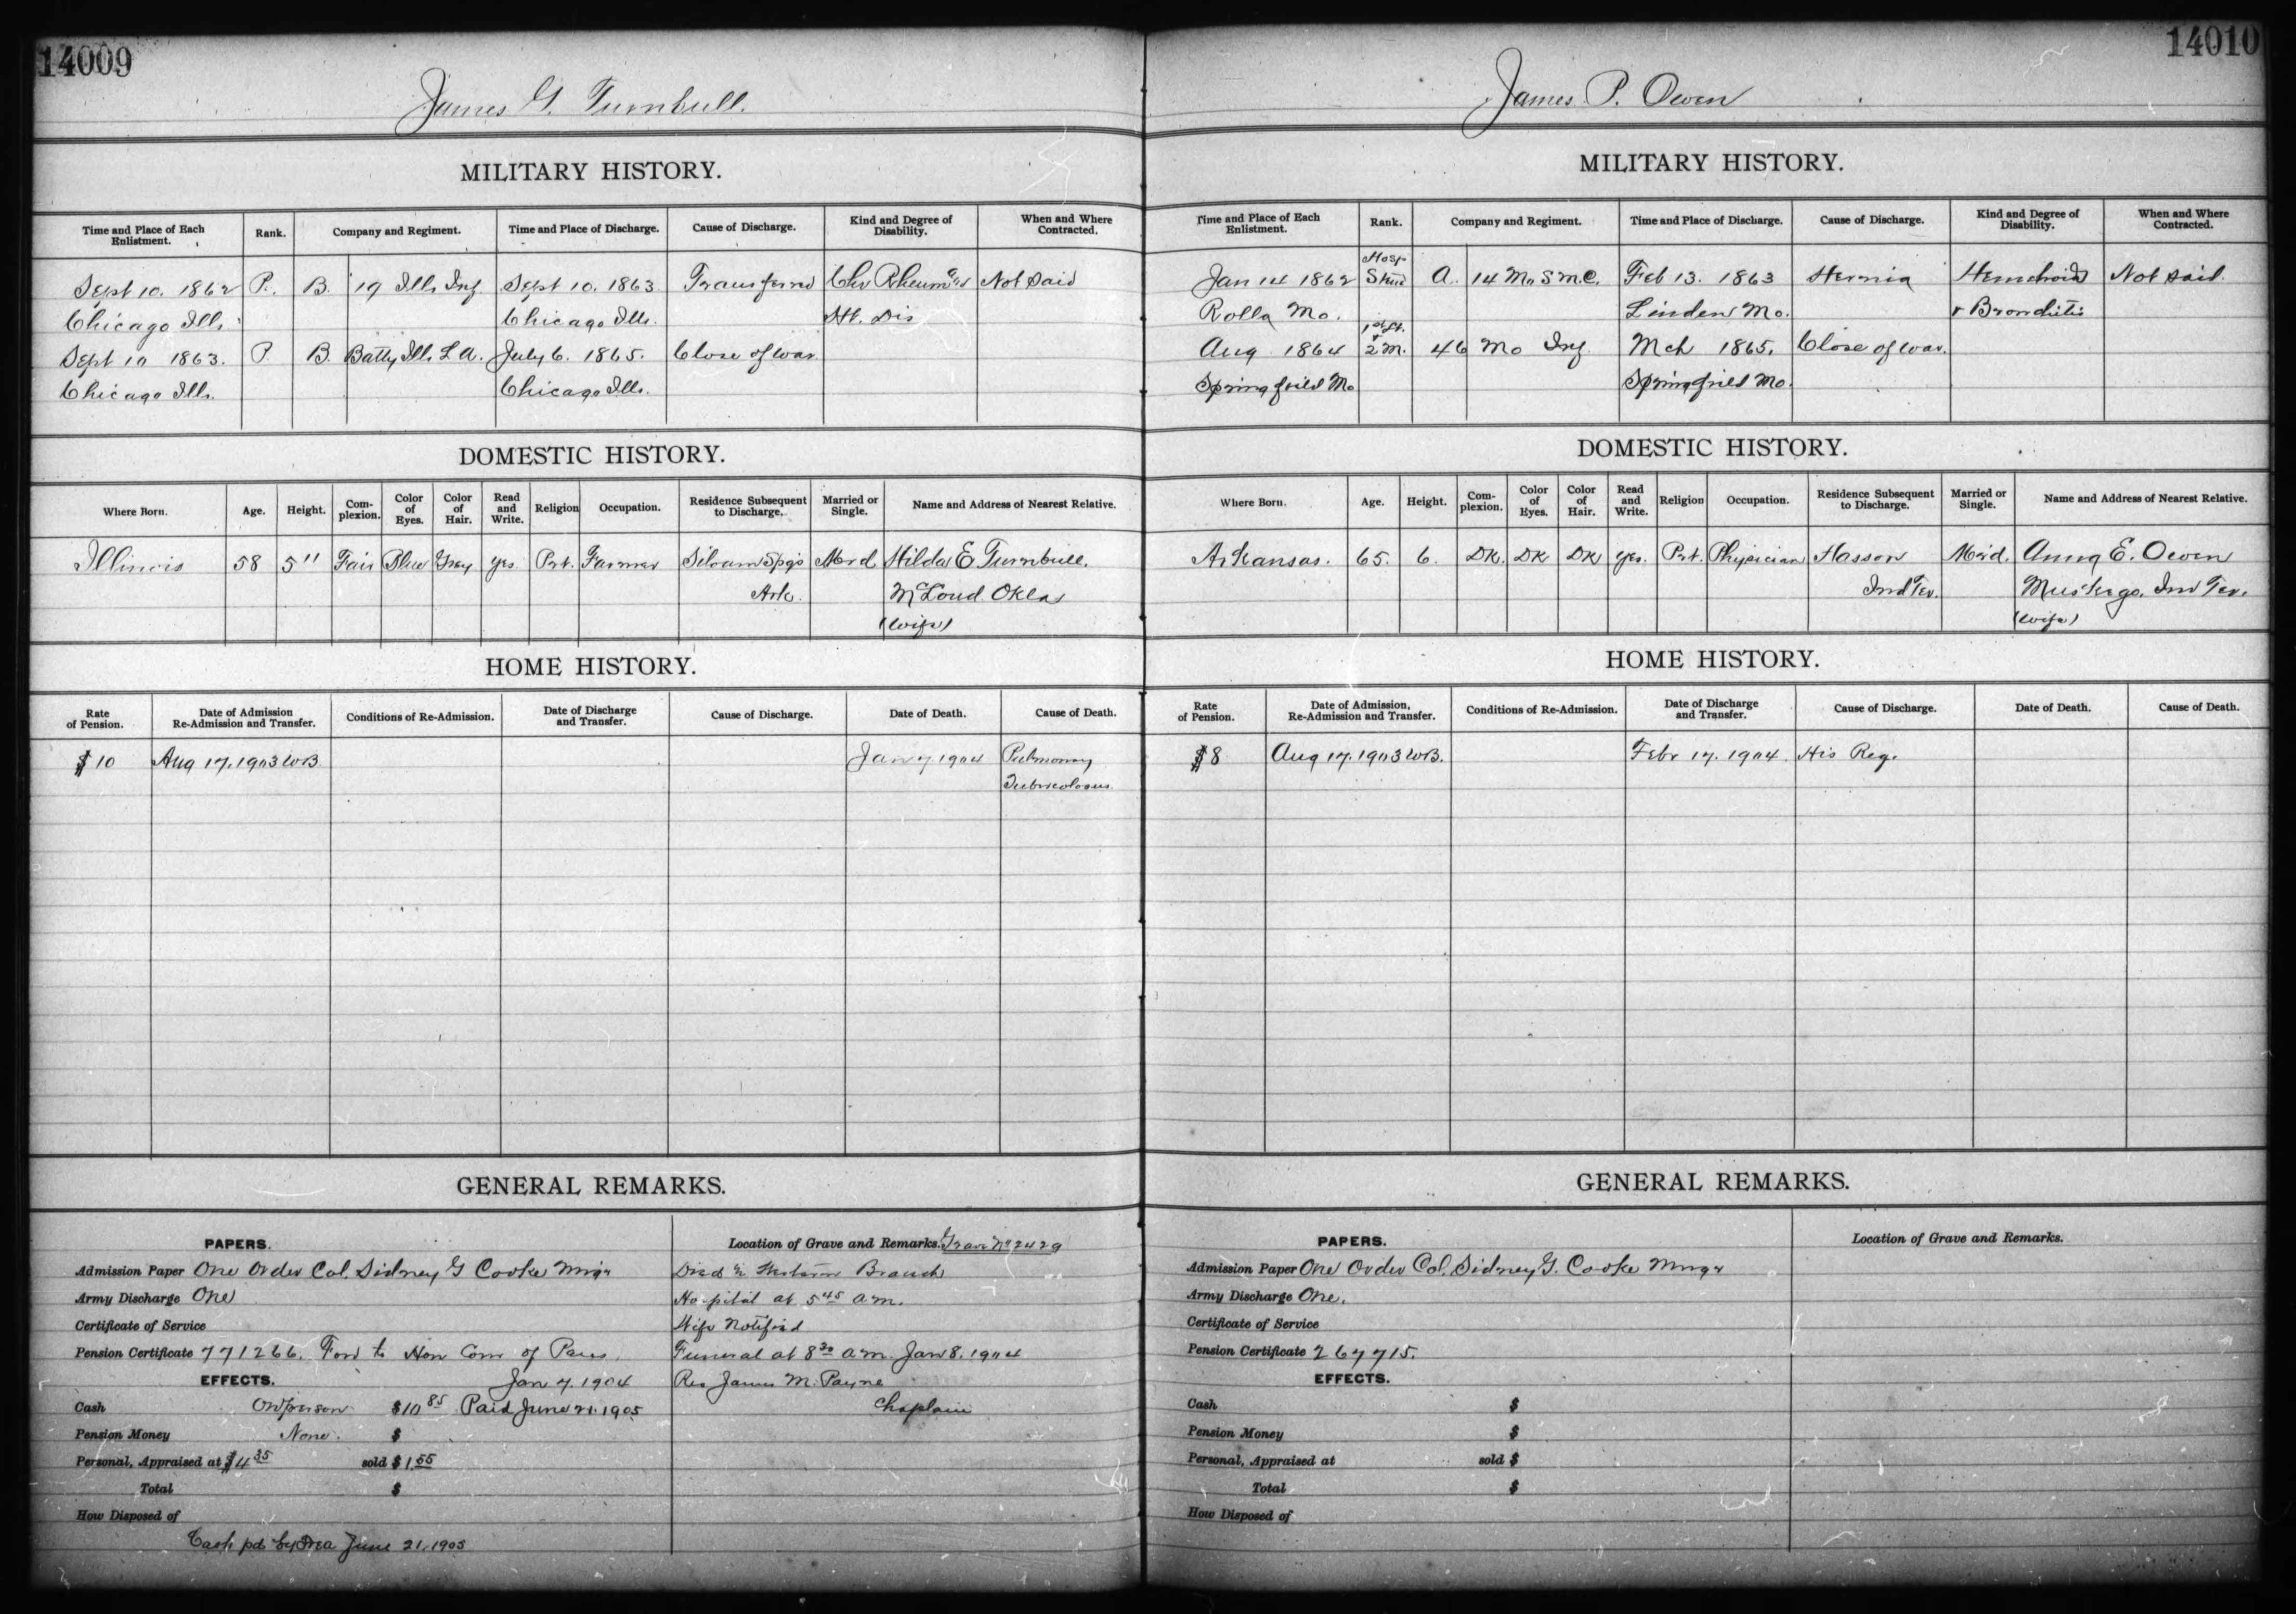 14009
James G. Turnbull.
MILITARY HISTORY.
Time and Place of Each Enlistment. Rank. Company and Regiment. Time and Place of Discharge. Cause of Discharge. Kind and Degree of Disability. When and Where Contracted.
Sept 10. 1862 P. B. 19 Ills Inf. Sept 10. 1863 Transferred Chr Rheum Not Said
Chicago Ills. Chicago Ills. Ht. Dis
Sept 10 1863. P. B. Batty Ill. L A. July 6. 1865. Close of war
Chicago Ills. Chicago Ills.
DOMESTIC HISTORY.
Where Born. Age. Height. Complexion. Color of Eyes. Color of Hair. Read and Write. Religion Occupation. Residence Subsequent to Discharge. Married or Single. Name and Address of Nearest Relative.
Illinois 58 5" Fair Blue Grey yes Prt. Farmer Siloam Spgs Mard Hilda E Turnbull.
Ark. McLoud. Okla
(wife)
HOME HISTORY.
Rate of Pension. Date of Admission Re-Admission and Transfer. Conditions of Re-Admission. Date of Discharge and Transfer. Cause of Discharge. Date of Death. Cause of Death.
$10 Aug 17. 1903 WB Jan 7 1904 Pulmonary
Tuberculosus
GENERAL REMARKS.
PAPERS.
Admission Paper One Order Col. Sidney G Cooke Mngr
Army Discharge One
Certificate of Service
Pension Certificate 771266. Ford to Hon Com of Pens.
EFFECTS. Jan 7. 1904
Cash On person $10 85 Paid June 21. 1905
Pension Money None. $
Personal, Appraised at $4 35 sold $1.55
Total $
How Disposed of
Cash pd by Trea June 21. 1905
Location of Grave and Remarks. Grave No 2429
Died in Western Branch
Hospital at 5 45 a m.
Wife Notified
Funeral at 8 30 a m. Jan 8. 1904
Rev James M. Payne
Chaplain
14010
James P. Owen
MILITARY HISTORY.
Time and Place of Each Enlistment. Rank. Company and Regiment. Time and Place of Discharge. Cause of Discharge. Kind and Degree of Disability. When and Where Contracted.
Jan 14 1862 Hosp Stwd A. 14 Mo S M C. Feb 13. 1863 Hernia Hemchoids Not Said.
Rolla Mo. Linden Mo. & Bronchitis
Aug 1864 1st Lt. 2 M. 46 Mo Inf Mch 1865. Close of war.
Springfield Mo Springfield Mo.
DOMESTIC HISTORY.
Where Born. Age. Height. Complexion. Color of Eyes. Color of Hair. Read and Write. Religion Occupation. Residence Subsequent to Discharge. Married or Single. Name and Address of Nearest Relative.
Arkansas. 65. 6. DK. DK DK yes. Prt. Physician Hasson Mard. Anna E. Owen
Ind Ter. Muskego. Ind Ter.
(wife)
HOME HISTORY.
Rate of Pension. Date of Admission, Re-Admission and Transfer. Conditions of Re-Admission. Date of Discharge and Transfer. Cause of Discharge. Date of Death. Cause of Death.
$8 Aug 17. 1903 WB. Febr 17. 1904. His Req.
GENERAL REMARKS.
PAPERS.
Admission Paper One Order Col. Sidney G. Cooke Mngr
Army Discharge One.
Certificate of Service
Pension Certificate 267715.
EFFECTS.
Cash $
Pension Money $
Personal, Appraised at sold $
Total $
How Disposed of
Location of Grave and Remarks.